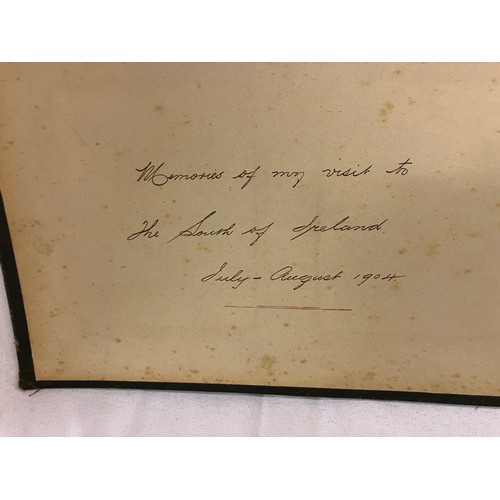 Memories of my visit to
the South of Ireland.
July - August 1904